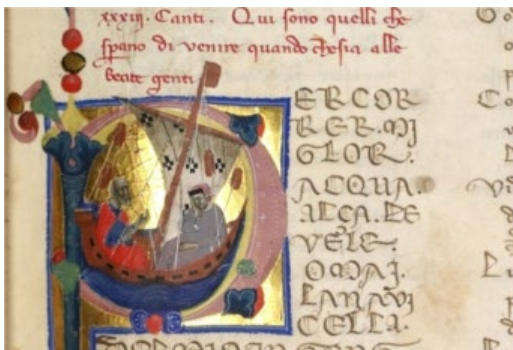 xxxiii. Canti. Qui sono quelli che
spano di venire quando chesia alle
beate genti
PERCOR
RER.MI
GLOR.
ACQUA.
ALÇA.LE
VELE.
OMAI.
LANAVI
CELLA.